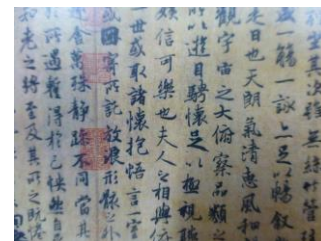 坐其次雖無絲竹管
盛一觴一詠亦足以暢敘
是日也天朗氣清惠風和
觀宇宙之大俯察品類之
所以遊目騁懷足以極視聽
娛信可樂也夫人之相與俯
一世或取諸懷抱悟言一室
或因寄所託放浪形骸之外
趣舍萬殊靜躁不同當其
所遇暫得於己快然自足
知老之將至及其所之既惓